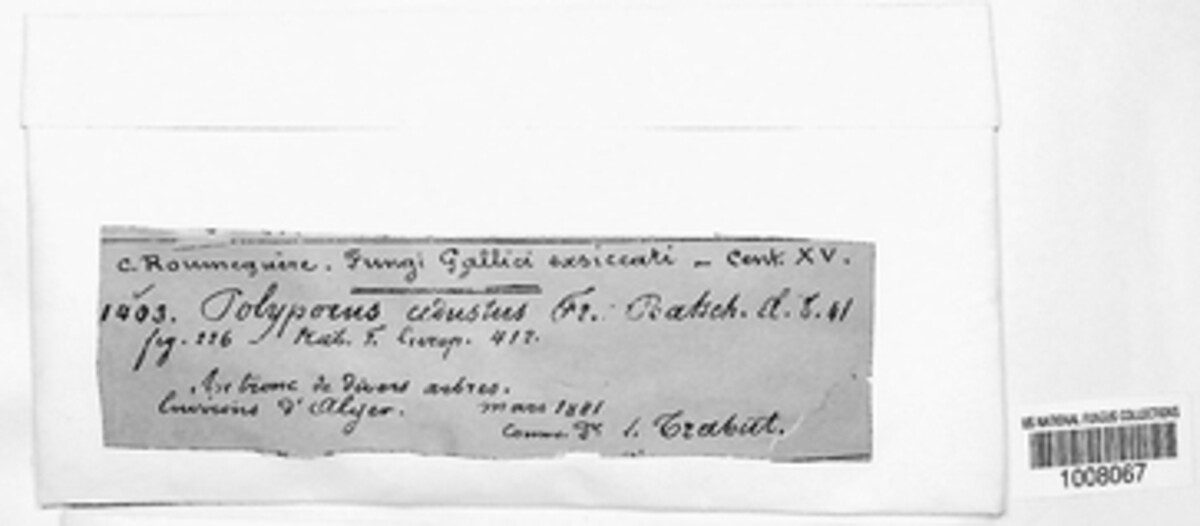 C. Roumeguère. Fungi Gallici exsiccati - Cent. XV.
1403. Polyporus adustus Fr. Batsch. t. 41
fig. 226 - Rab. F. Europ. 412.
Sur tronc de divers arbres.
Environs d'Alger. mars 1881
Comm. Dr. L. Trabut.
US NATIONAL FUNGUS COLLECTIONS
1008067